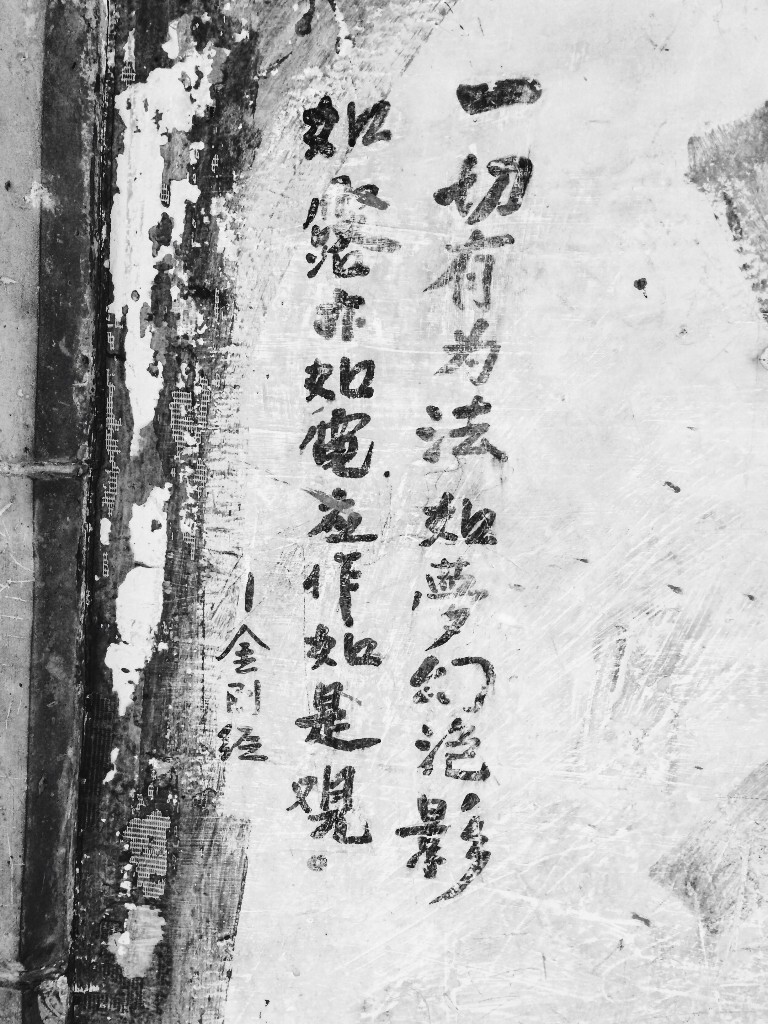 一切有为法如夢幻泡影
如露亦如電应作如是观。
—金刚经